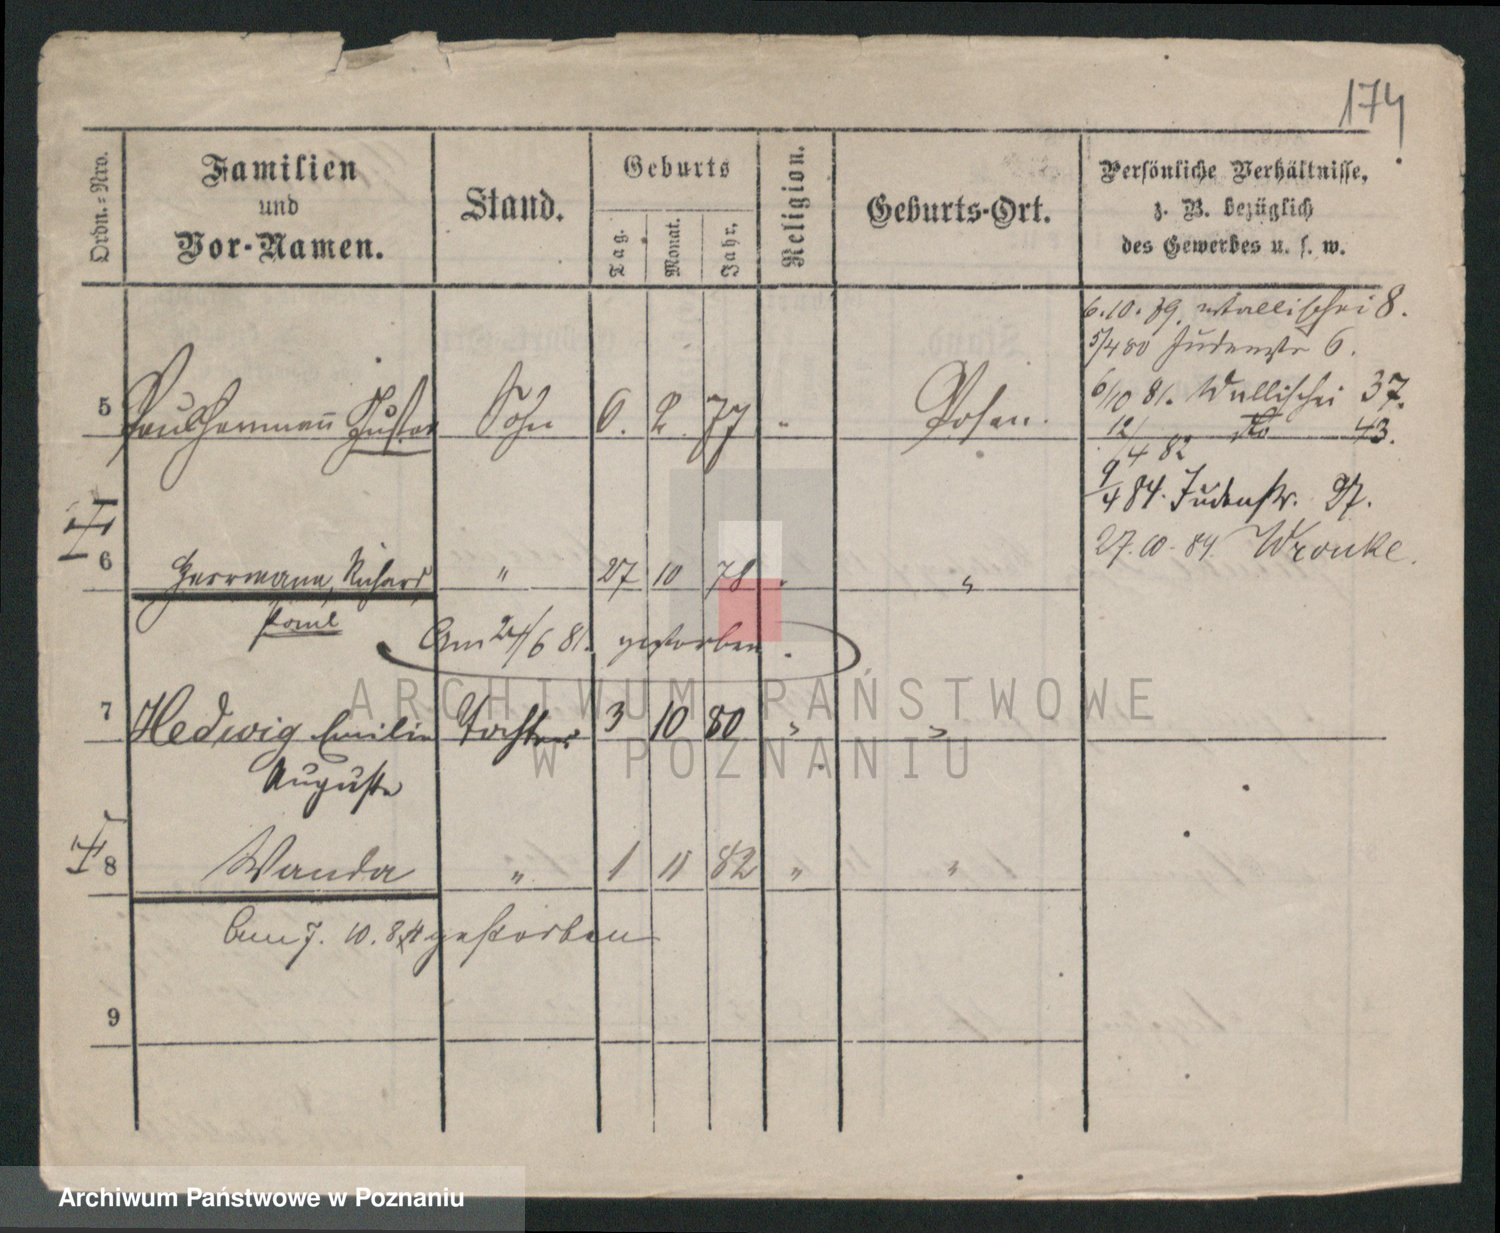 174
Ordn.-Nro.
Familien
und
Vor-Namen.
Stand.
Geburts
Tag.
Monat.
Jahr.
Religion.
Geburts-Ort.
Persönliche Verhältnisse,
z. B. bezüglich
des Gewerbes u. s. w.
6.10.79. Wallischei 8.
5/4 80 Judenstr 6.
6/10 81. Wallischei 37.
12/4 82 do 43.
9/4 84. Judenstr. 27.
27.10.84 Wronke.
5 Paul Hermann Gustav Sohn 6. 2. 77 " Posen.
6 Herrmann, Richard " 27 10 78 " "
Paul
Am 24/6 81. gestorben.
7 Hedwig Emilie Tochter 3 10 80 " "
Auguste
8 Wanda " 1 11 82 " "
Am 7. 10. 84 gestorben
9
ARCHIWUM PAŃSTWOWE
W POZNANIU
Archiwum Państwowe w Poznaniu